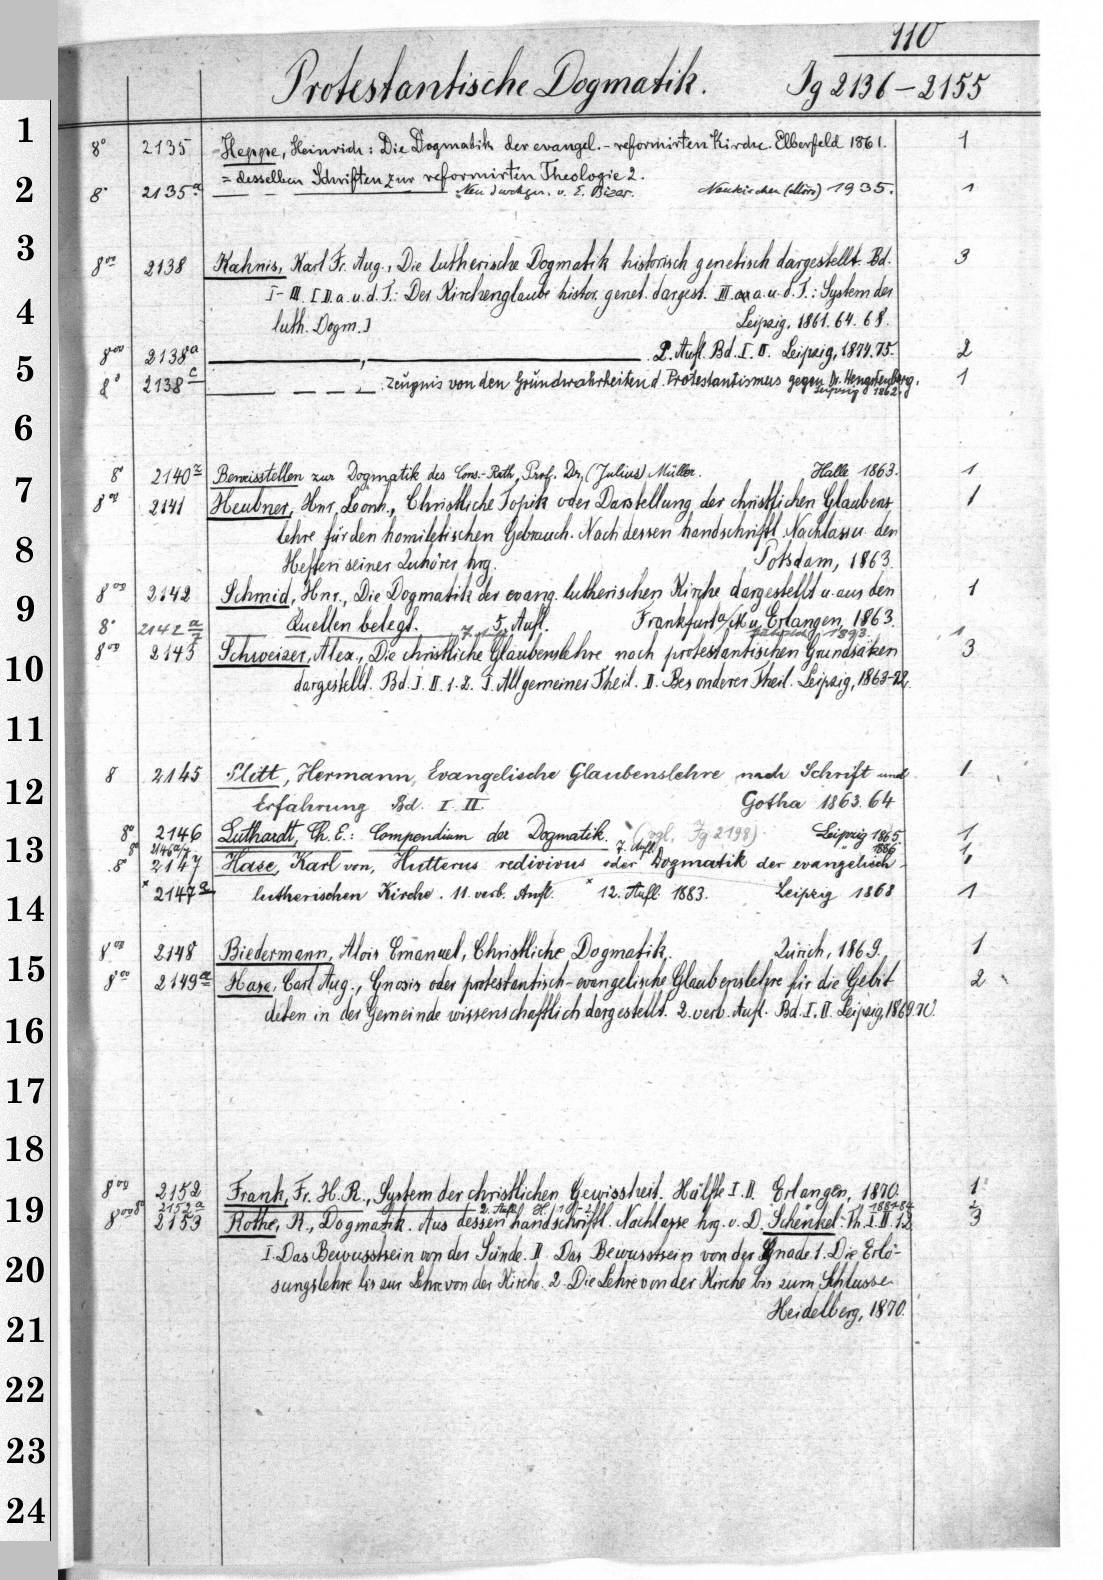 110
Protestantische Dogmatik. Jg 2136 – 2155
1
8° 2135 Heppe, Heinrich: Die Dogmatik der evangel.-reformirten Kirche. Elberfeld 1861. 1
= desselben Schriften zur reformirten Theologie 2.
2
8° 2135a — Neu durchges. v. E. Bizer. Neukirchen (Mörs) 1935. 1
3
8vo 2138 Kahnis, Karl Fr. Aug., Die lutherische Dogmatik historisch genetisch dargestellt. Bd. 3
I–III. I.II. a. u. d. T.: Der Kirchenglaube histor. genet. dargest. III. a. u. d. T.: System der
4
luth. Dogm.] Leipzig, 1861. 64. 68.
8vo 2138a —, — 2. Aufl. Bd. I. II. Leipzig, 1874.75. 2
5
8° 2138c — — — — Zeugnis von den Grundwahrheiten d. Protestantismus gegen Dr. Hengstenberg. 1
Leipzig 1862.
6
8° 2140z Beweisstellen zur Dogmatik des Cons.-Rath, Prof. Dr, (Julius) Müller. Halle 1863. 1
7
8vo 2141 Heubner, Hnr. Leonh., Christliche Topik oder Darstellung der christlichen Glaubens 1
lehre für den homiletischen Gebrauch. Nach dessen handschriftl. Nachlasse u. den
8
Heften seiner Zuhörer hrg. Potsdam, 1863.
8vo 2142 Schmid, Hnr., Die Dogmatik der evang. lutherischen Kirche dargestellt u. aus den 1
9
Quellen belegt. 5. Aufl. Frankfurt a/M u. Erlangen, 1863.
8° 2142 a/7 — — 7. Aufl. 1893. 1
8vo 2143 Schweizer, Alex., Die christliche Glaubenslehre nach protestantischen Grundsäken 3
10
dargestellt. Bd. I. II. 1. 2. I. Allgemeiner Theil. II. Besonderer Theil. Leipzig, 1863–72.
11
8 2145 Plitt, Hermann, Evangelische Glaubenslehre nach Schrift und 1
12
Erfahrung Bd. I. II Gotha 1863.64
8° 2146 Luthardt, Ch. E.: Compendium der Dogmatik. (vgl. Jg 2198) Leipzig 1865 1
13
8° 2146a/7 7. Aufl. " 1886 1
8° 2147 Hase, Karl von, Hutterus redivivus oder Dogmatik der evangelisch-
14
× 2147a lutherischen Kirche. 11. verb. Aufl. × 12. Aufl. 1883. Leipzig 1868 1
8vo 2148 Biedermann, Alois Emanuel, Christliche Dogmatik. Zürich, 1869. 1
15
8vo 2149a Hase, Carl Aug., Gnosis oder protestantisch-evangelische Glaubenslehre für die Gebil 2
deten in der Gemeinde wissenschaftlich dargestellt. 2. verb. Aufl. Bd. I. II. Leipzig, 1869.70.
16
17
18
8vo 2152 Frank, Fr. H. R., System der christlichen Gewissheit. Hälfte I. II. Erlangen, 1870. 1
19
8° 2152a 2. Aufl. H. 1-2. 1881-84 2
8vo 2153 Rothe, R., Dogmatik. Aus dessen handschriftl. Nachlasse hrg. v. D. Schenkel. Th. I. II. 1.2. 3
I. Das Bewusstsein von der Sünde. II. Das Bewusstsein von der Gnade 1. Die Erlö-
20
sungslehre bis zur Lehre von der Kirche. 2. Die Lehre von der Kirche bis zum Schlusse
Heidelberg, 1870.
21
22
23
24